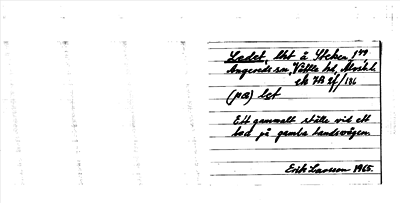 Ledet, lht å Steken, 1/49
Angereds sn, Vättle hd, Älvsb. l.
ek 7B 2f/186
(pα) let
Ett gammalt ställe vid ett
led på gamla landsvägen.
Erik Larsson 1965.